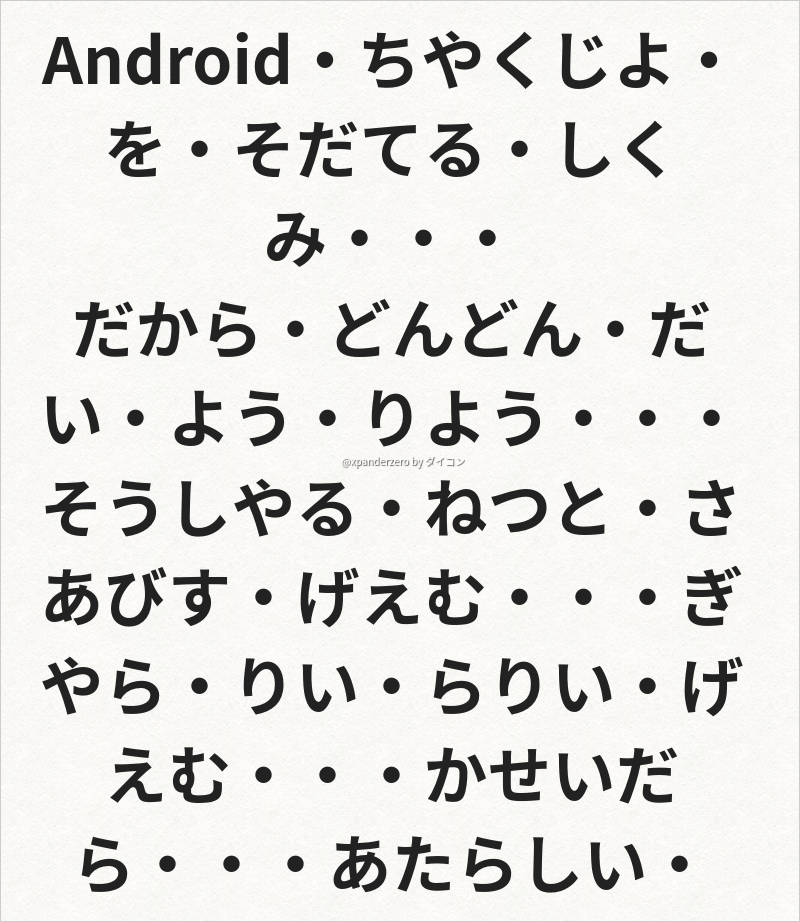 Android・ちやくじよ・
を・そだてる・しく
み・・・
だから・どんどん・だ
い・よう・りよう・・・
@xpanderzero by ダイコン
そうしやる・ねつと・さ
あびす・げえむ・・・ぎ
やら・りい・らりい・げ
えむ・・・かせいだ
ら・・・あたらしい・